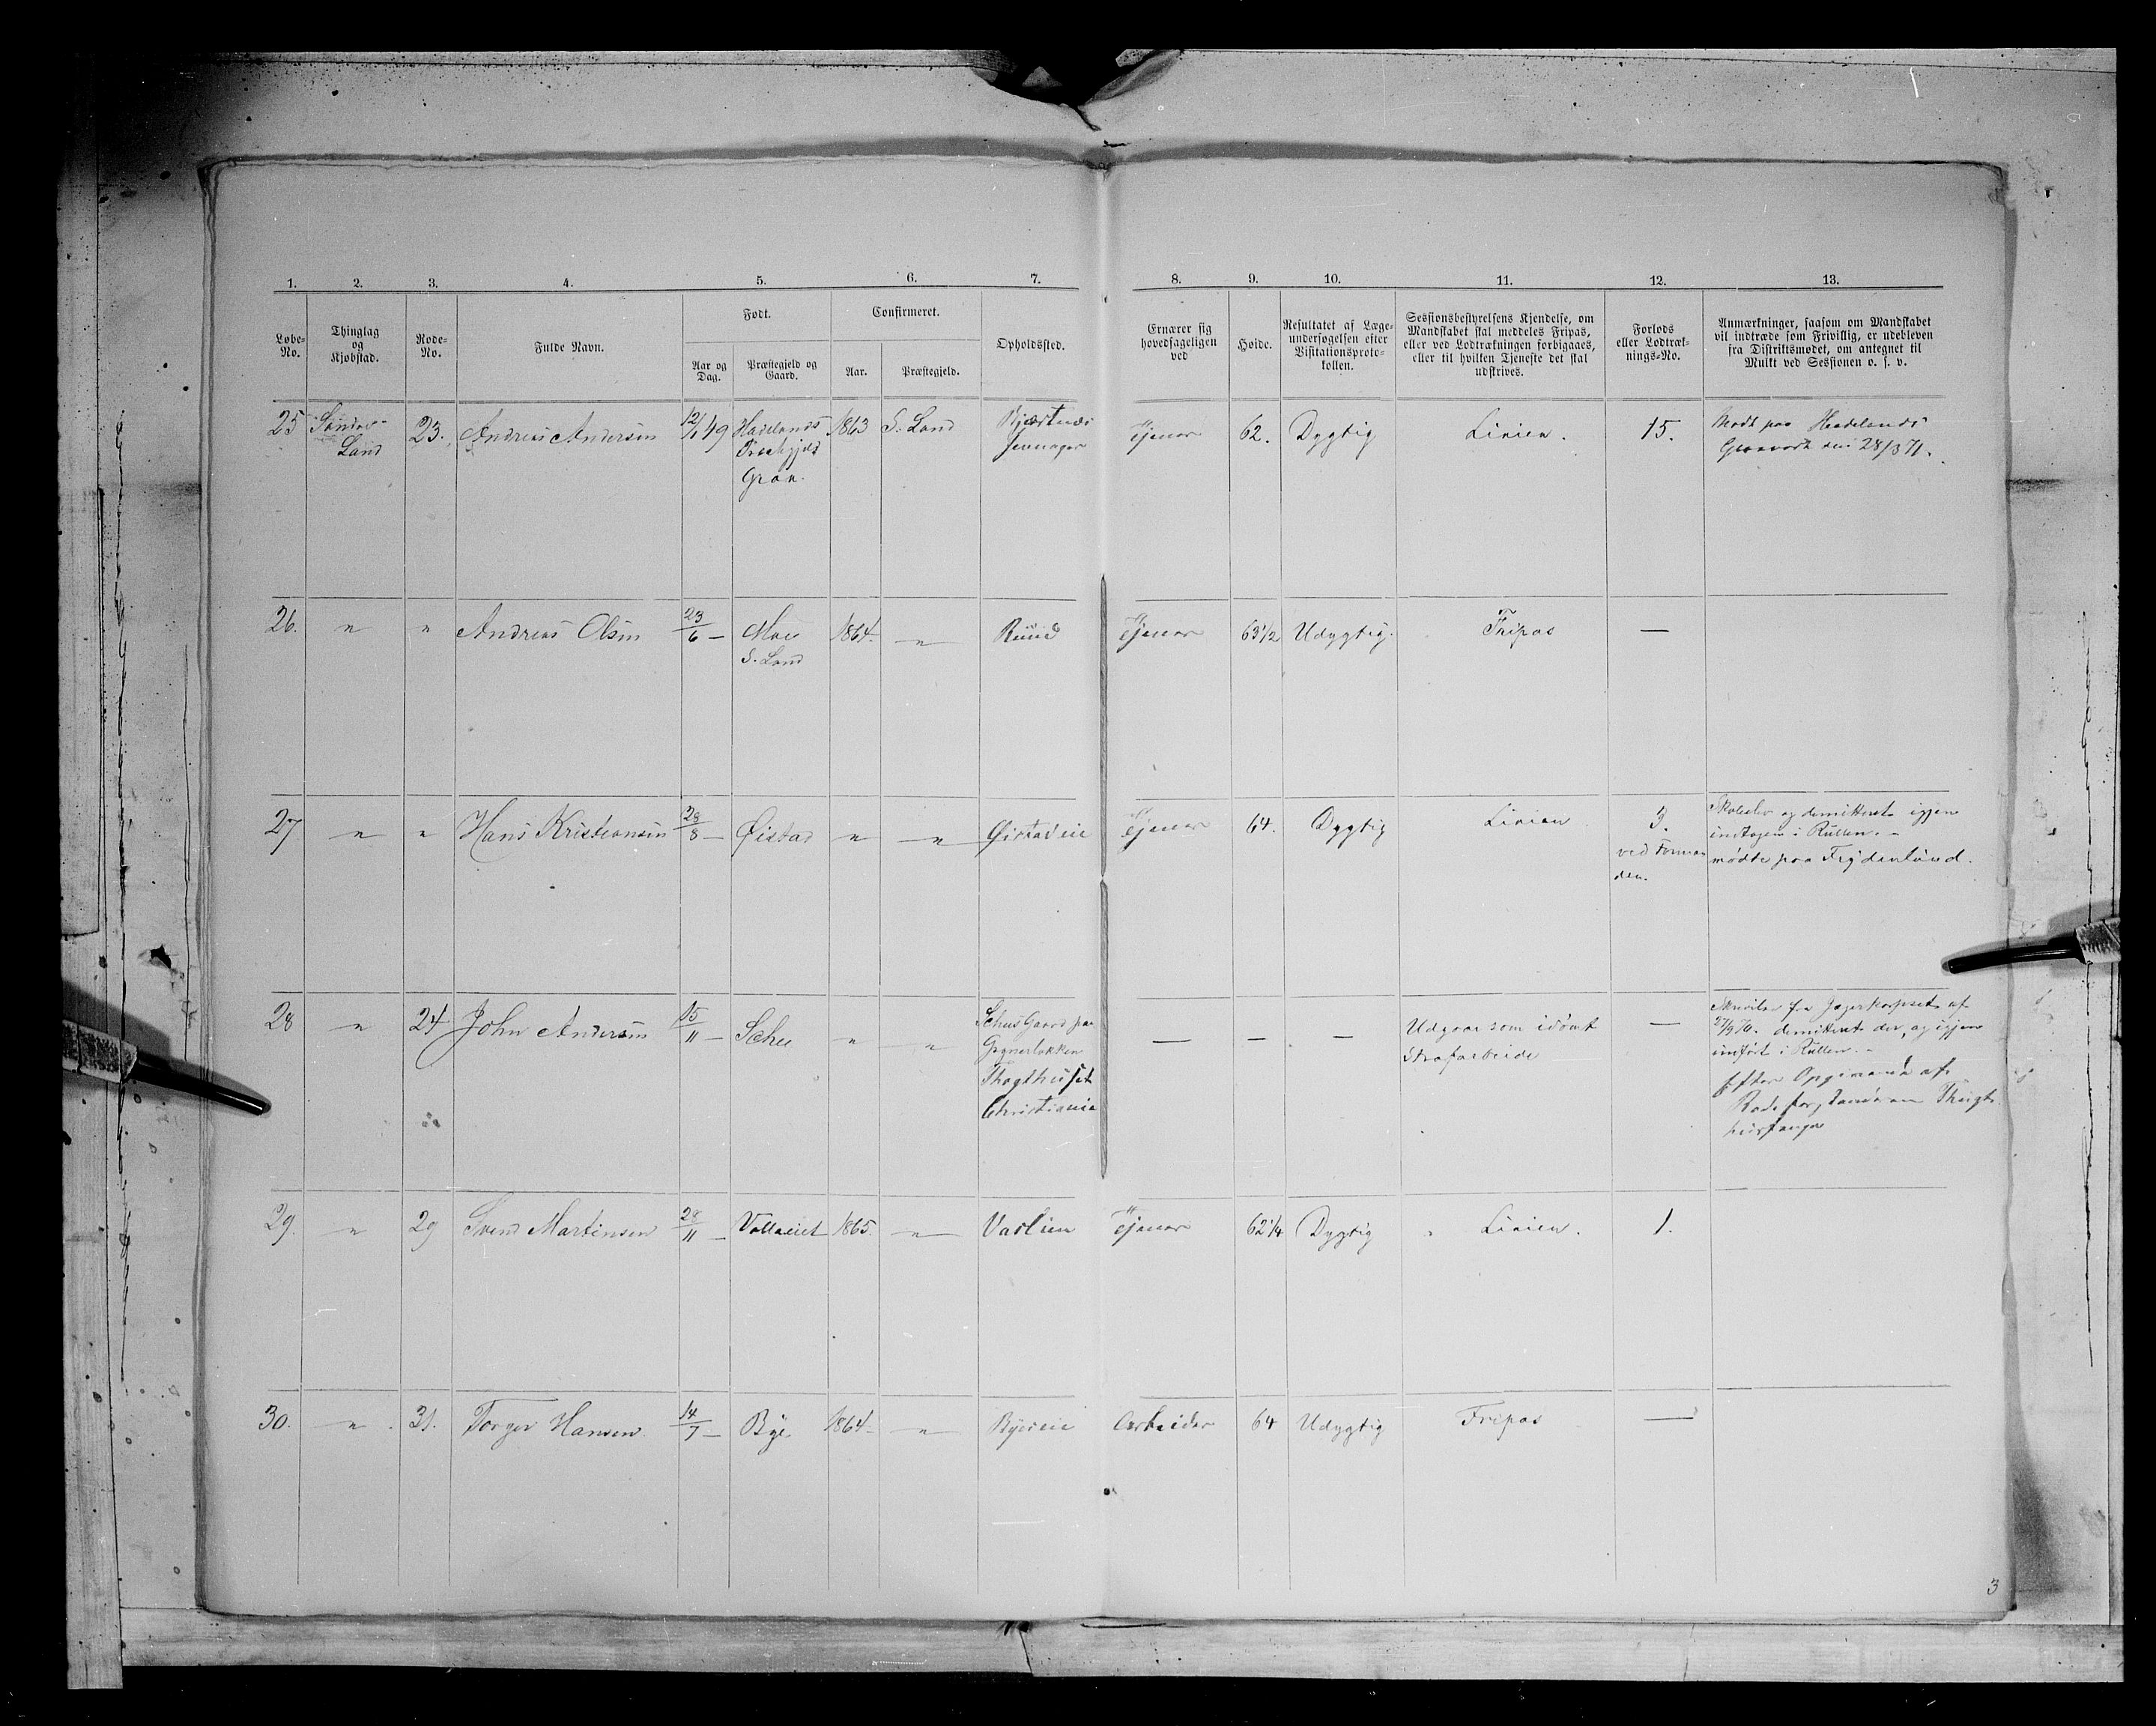 1. 2. 3. 4. 5. 6. 7. 8. 9. 10. 11. 12. 13.
Løbe-No.
Thinglag og Kjøbstad.
Rode-No.
Fulde Navn.
Født.
Aar og Dag.
Præstegjeld og Gaard.
Confirmeret.
Aar.
Præstegjeld.
Opholdssted.
Ernærer sig hovedsageligen ved
Høide.
Resultatet af Læge-undersøgelsen efter Visitationsproto-kollen.
Sessionsbestyrelsens Kjendelse, om Mandskabet skal meddeles Fripas, eller ved Lodtrækningen forbigaaes, eller til hvilken Tjeneste det skal udskrives.
Forlods eller Lodtræk-nings-No.
Anmærkninger, saasom om Mandskabet vil indtræde som Frivillig, er udebleven fra Distriktsmødet, om antegnet til Mulkt ved Sessionen o. s. v.
25 Søndre-Land 23. Andreas Andersen 12/1 49 Hadelands Præstegjeld Gran. 1863 S. Land Tjener 62. Dygtig Linien. 15. Mødt paa Hadelands 28/3 71.
26. " " Andreas Olsen 23/6 – Moe S. Land 1864. " Ruud Tjener 63 1/2 Udygtig. Fripas —
27 " " Hans Kristiansen 28/8 – Øistad " " Øistadeie Tjener 64. Dygtig Linien 3. ved Forman den. og demitteret igjen indtagen i Rullen. – mødte paa Frydenlund.
28 " 24 John Andersen 15/11 – Schee " " Schus Gaard paa Grynerløkken Thugthuset Christiania — – — Udgaar som idømt Strafarbeide — fra Jægerkorpset af 27/9 70. demitteret der, og igjen indført i Rullen. – Efter Opgivende af Rodeforstanderen Thugt-husfange
29. " 29 Svend Martinsen 28/11 – Vollaeiet 1865. " Vaslien Tjener 62 1/4 Dygtig Linien. 1.
30. " 31. Torger Hansen 14/7 – Bye 1864 " Byeeie Arbeider 64 Udygtig Fripas —
3